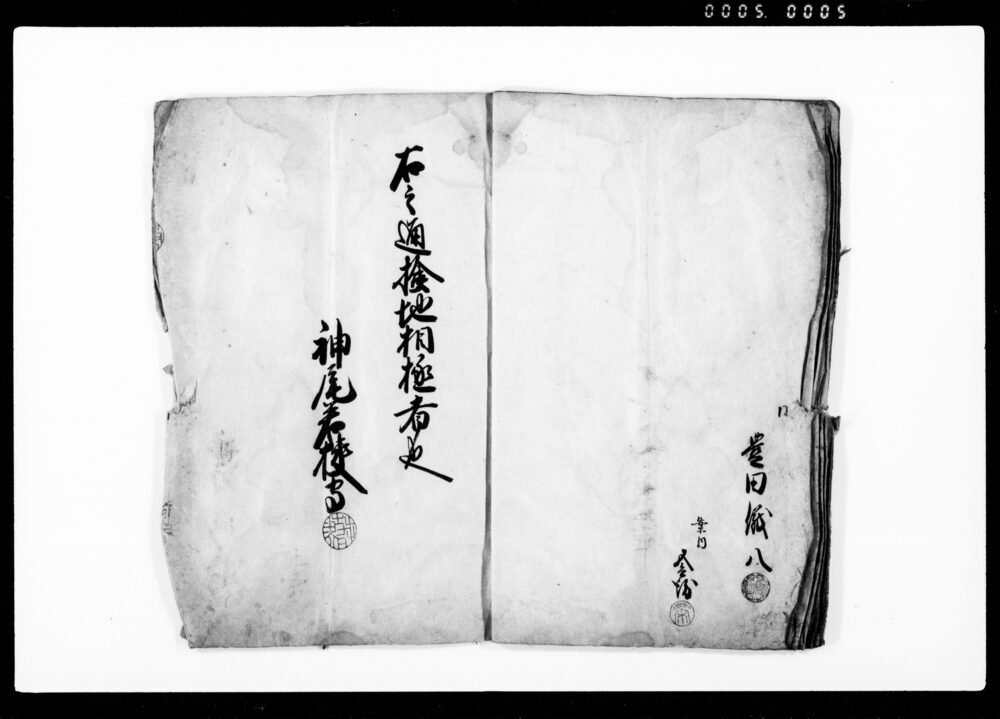 0005. 0005
豊田織八
案内
右之通検地相極者也
神尾若狭守